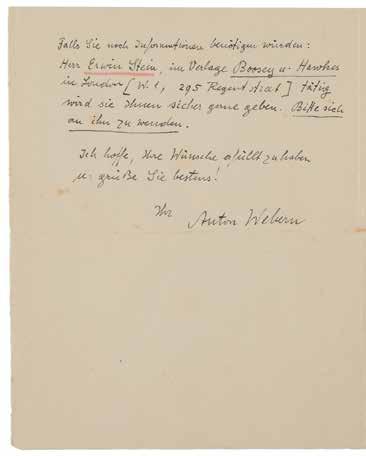 Falls Sie noch Informationen benötigen würden:
Herr Erwin Stein, im Verlage Boosey u. Hawkes
in London [W. 1, 295 Regent street] tätig
wird sie Ihnen sicher gerne geben. Bitte sich
an ihn zu wenden.
Ich hoffe, Ihre Wünsche erfüllt zu haben
u. grüße Sie bestens!
Ihr
Anton Webern